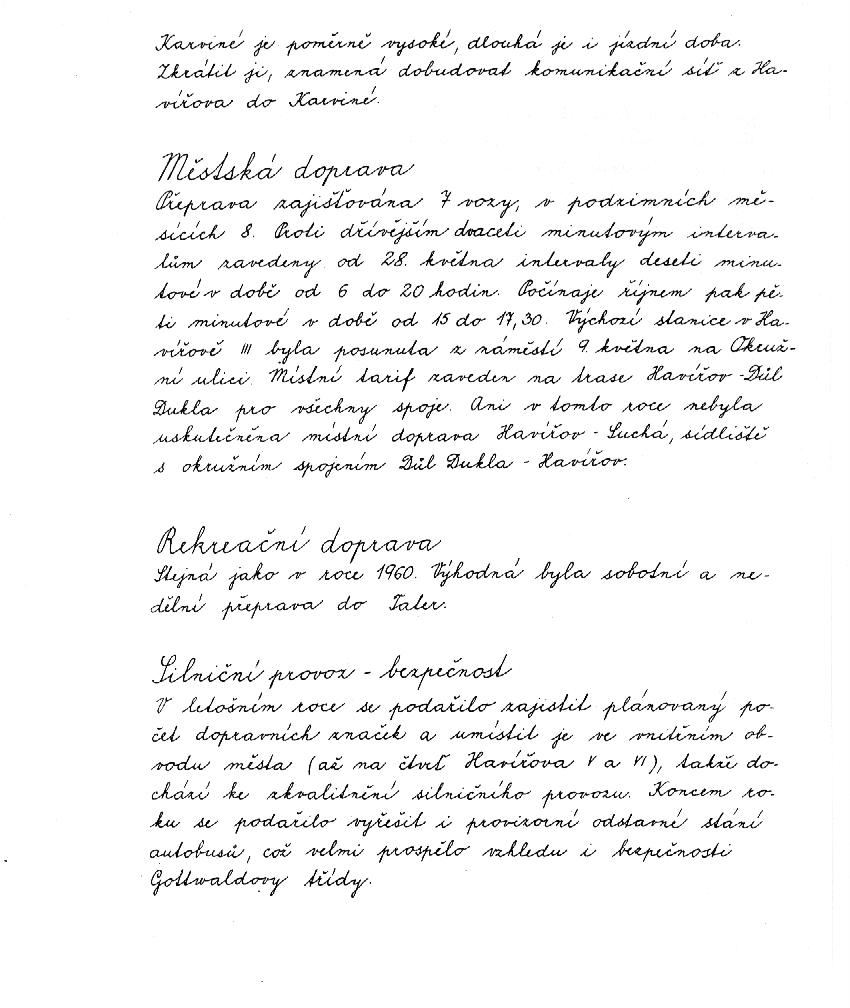 Karviné je poměrně vysoké, dlouhá je i jízdní doba.
Zkrátit ji, znamená dobudovat komunikační síť z Ha-
vířova do Karviné.
Městská doprava
Přeprava zajišťována 7 vozy, v podzimních mě-
sících 8. Proti dřívějším dvaceti minutovým interva-
lům zavedeny od 28. května intervaly deseti minu-
tové v době od 6 do 20 hodin. Počínaje říjnem pak pě-
ti minutové v době od 15 do 17,30. Výchozí stanice v Ha-
vířově III byla posunuta z náměstí 9. května na Okruž-
ní ulici. Místní tarif zaveden na trase Havířov - Důl
Dukla pro všechny spoje. Ani v tomto roce nebyla
uskutečněna místní doprava Havířov - Suchá, sídliště
s okružním spojením Důl Dukla - Havířov.
Rekreační doprava
Stejná jako v roce 1960. Výhodná byla sobotní a ne-
dělní přeprava do Taler.
Silniční provoz - bezpečnost
V letošním roce se podařilo zajistit plánovaný po-
čet dopravních značek a umístit je ve vnitřním ob-
vodu města (až na čtvrť Havířova V a VI), takže do-
chází ke zkvalitnění silničního provozu. Koncem ro-
ku se podařilo vyřešit i provizorní odstavné stání
autobusů, což velmi prospělo vzhledu i bezpečnosti
Gottwaldovy třídy.